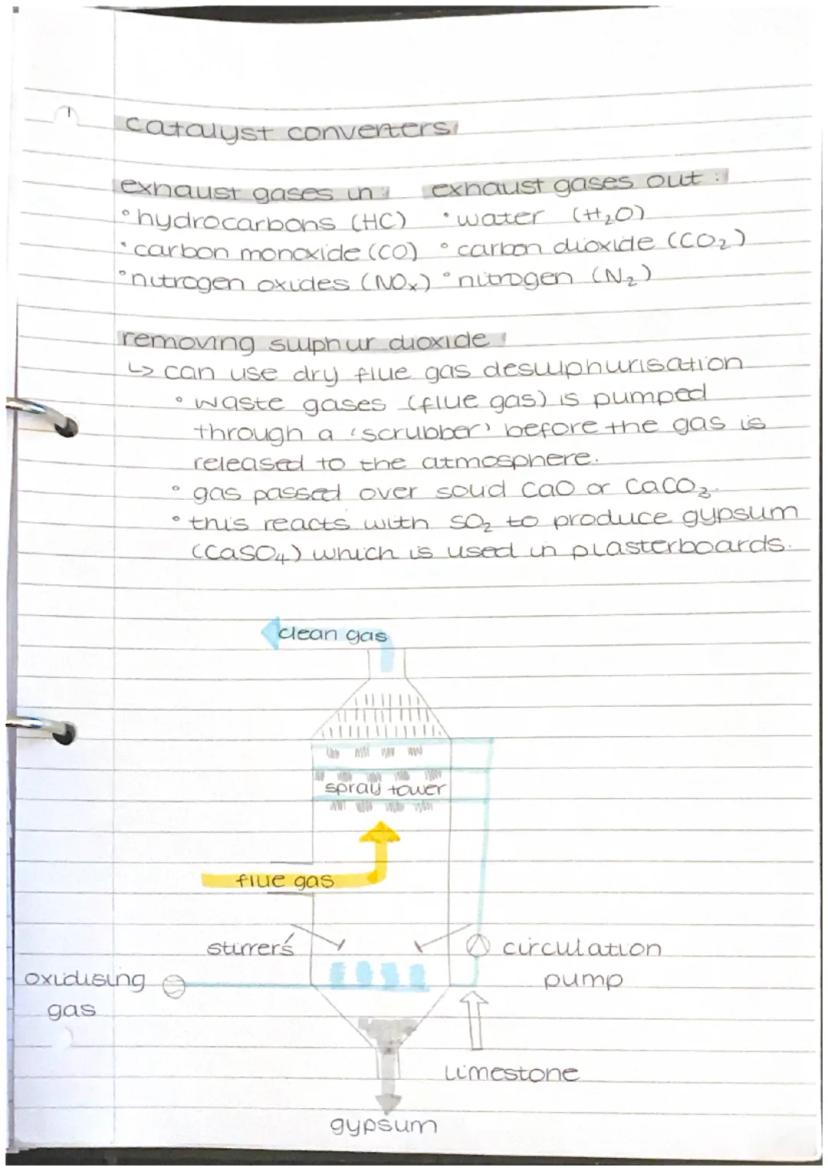 catalyst converters
exhaust gases in: exhaust gases out:
• hydrocarbons (HC) • water (H₂O)
• carbon monoxide (CO) • carbon dioxide (CO₂)
• nitrogen oxides (NOₓ) • nitrogen (N₂)
removing sulphur dioxide
↳ can use dry flue gas desulphurisation
• waste gases (flue gas) is pumped
through a 'scrubber' before the gas is
released to the atmosphere.
• gas passed over solid CaO or CaCO₃.
• this reacts with SO₂ to produce gypsum
(CaSO₄) which is used in plasterboards.
clean gas
spray tower
flue gas
stirrers
circulation
pump
oxidising
gas
limestone
gypsum